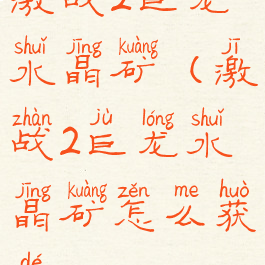 激战2巨龙
shuǐ jīng kuàng jī
水晶矿（激
zhàn jù lóng shuǐ
战2巨龙水
jīng kuàng zěn me huò
晶矿怎么获
dé